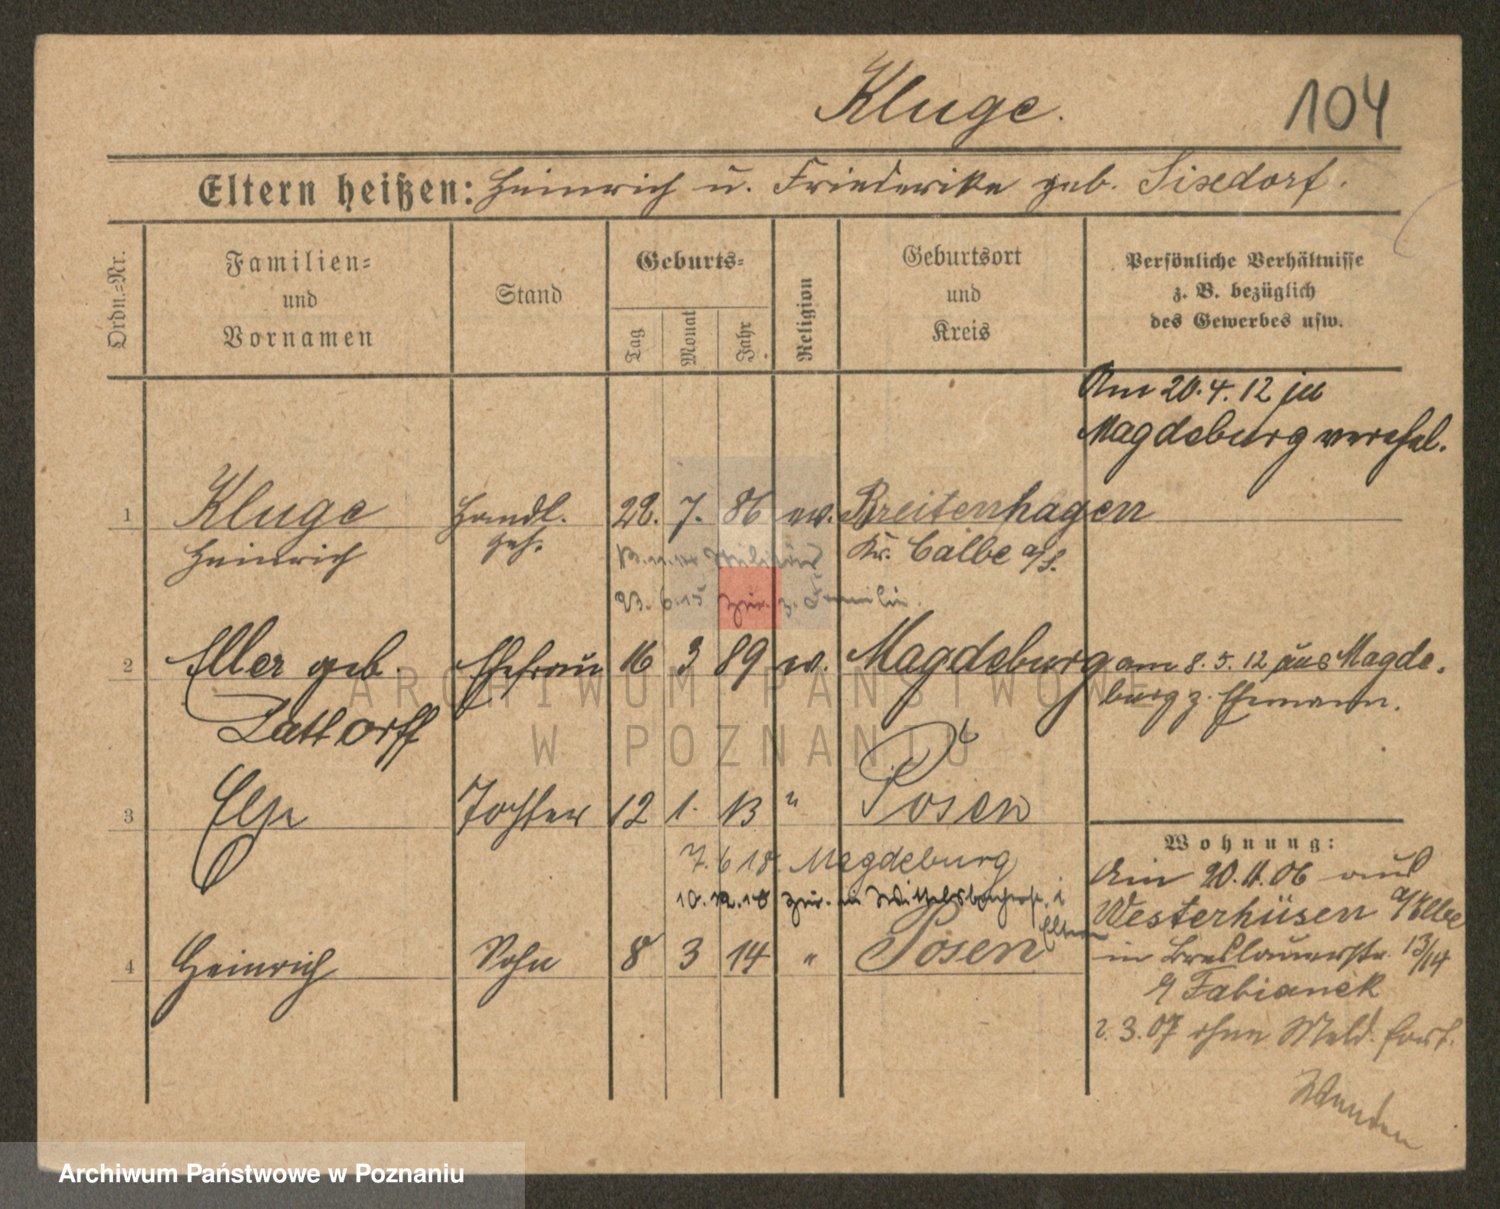 Kluge.
104
Eltern heißen: Heinrich u. Friederike geb. Sisedorf.
Ordn.-Nr.
Familien-
und
Vornamen
Stand
Geburts-
Tag
Monat
Jahr
Religion
Geburtsort
und
Kreis
Persönliche Verhältnisse
z. B. bezüglich
des Gewerbes usw.
Am 20.4.12 zu
Magdeburg verehel.
1 Kluge Handl. 28. 7. 86 ev. Breitenhagen
Heinrich geh. Kr. Calbe a/S.
23. 6.15 zur. z. Familie.
2 Eller geb. Ehefrau 16 3 89 ev. Magdeburg am 8.5.12 aus Magde-
burg z. Ehemann.
Lattorff
3 Else Tochter 12 1. 13 " Posen
Wohnung:
7.6 18. Magdeburg
Am 20.11.06 aus
10.12.18 zur. i
Westerhüsen a/Elbe
Eltern
4 Heinrich Sohn 8 3 14 " Posen
in Breslauerstr. 13/14
Fabianek
2.3.07 ohne Meld. fort.
ARCHIWUM PAŃSTWOWE
W POZNANIU
Archiwum Państwowe w Poznaniu